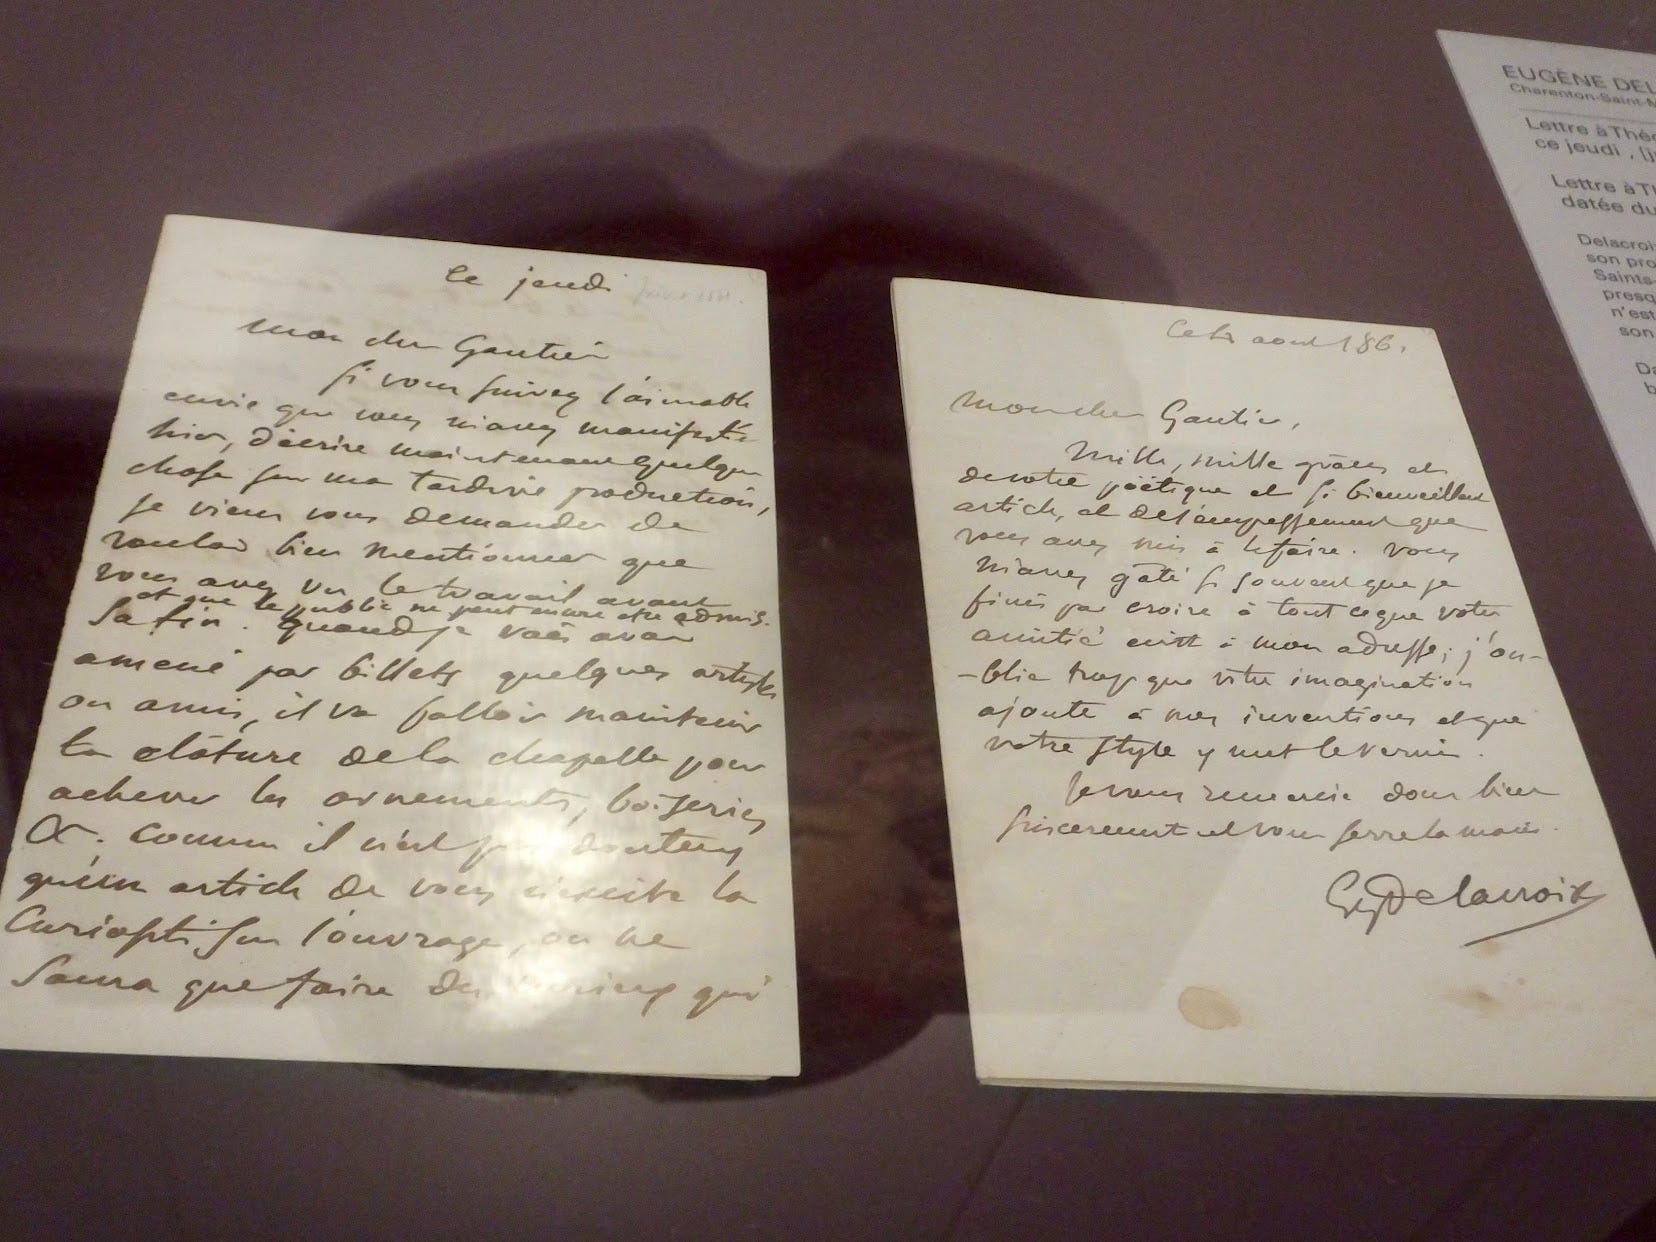 ce jeudi
mon cher Gautier
si vous suivez l'aimable
envie que vous m'avez manifestée
hier, d'écrire maintenant quelque
chose sur ma tardive production,
je viens vous demander de
vouloir bien mentionner que
vous avez vu le travail avant
et que le public ne peut encore être admis.
sa fin. quand je vais avoir
amené par billets quelques artistes
ou amis, il va falloir maintenir
la clôture de la chapelle pour
achever les ornements, boiseries
&. comme il n'est pas douteux
qu'un article de vous n'excite la
curiosité sur l'ouvrage, on ne
saura que faire des curieux qui
Ce août 186.
Mon cher Gautier,
Mille, mille grâces et
de votre poëtique et si bienveillant
article, et de l'empressement que
vous avez mis à le faire. Vous
m'avez gâté si souvent que je
finis par croire à tout ce que votre
amitié écrit à mon adresse; j'ou-
-blie trop que votre imagination
ajoute à mes inventions et que
votre style y met le vernis.
Je vous remercie donc bien
sincèrement et vous serre la main.
EugDelacroix
EUGÈNE DEL
Charenton-Saint-M
Lettre à Thé
ce jeudi, [j
Lettre à Th
datée du
Delacroi
son pro
Saints-
presq
n'est
son
Da
b